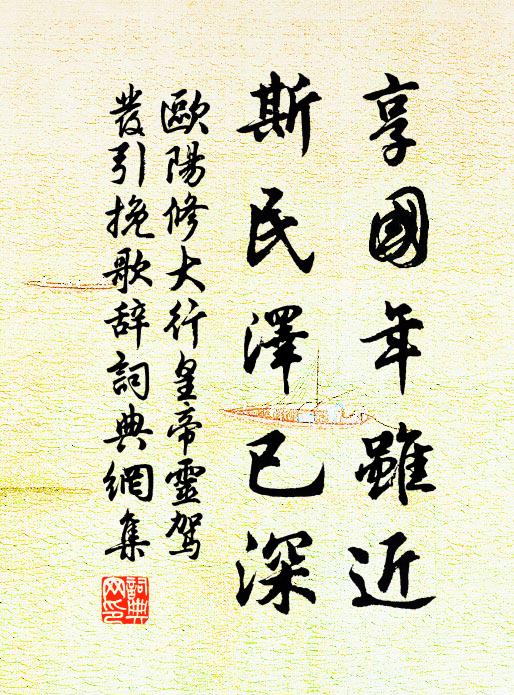 享國年雖近
斯民澤已深
歐陽修大行皇帝靈駕
發引挽歌辞詞典網集
詞典網印